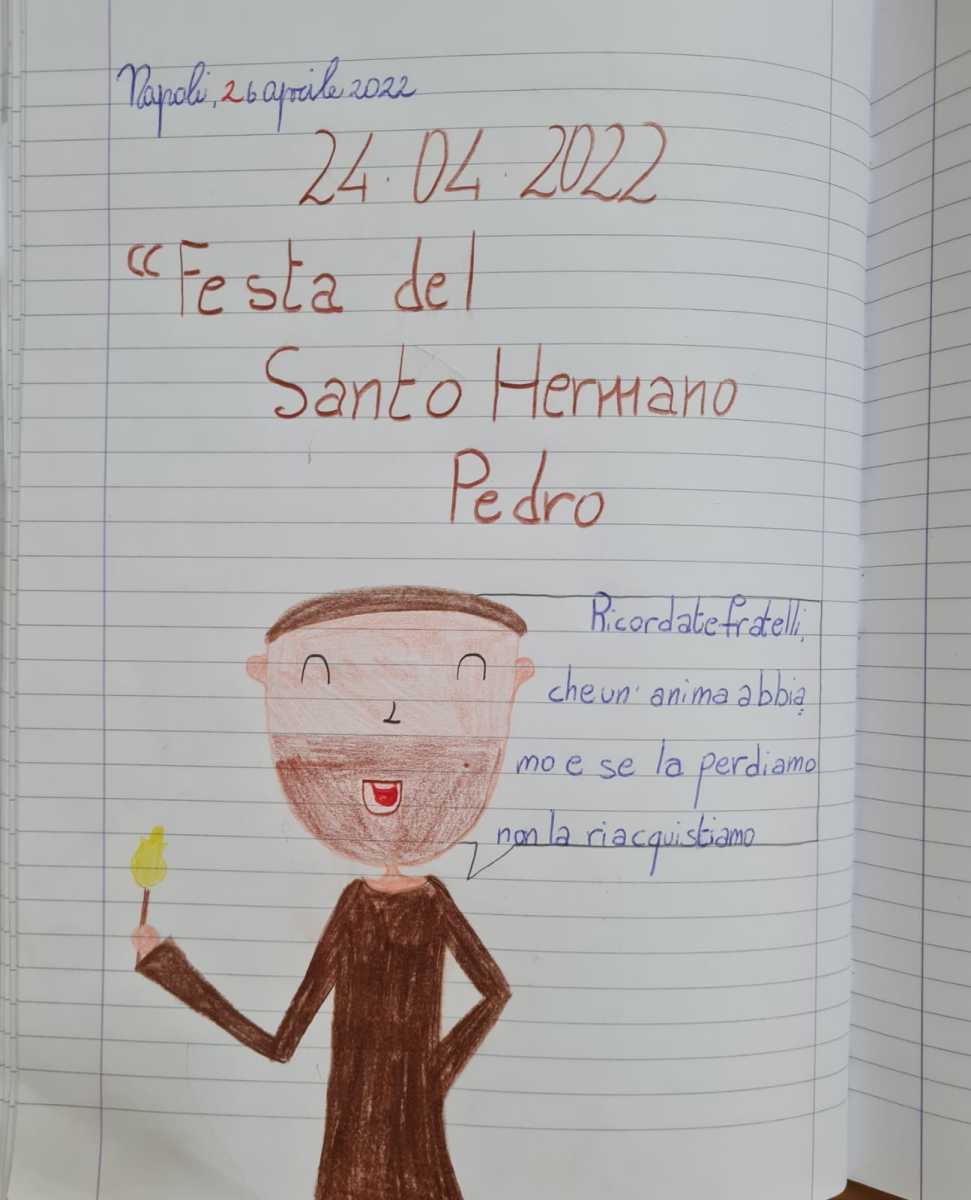 Napoli, 26 aprile 2022
24.04.2022
“Festa del
Santo Hermano
Pedro
Ricordate fratelli,
che un' anima abbia
mo e se la perdiamo
non la riacquistiamo